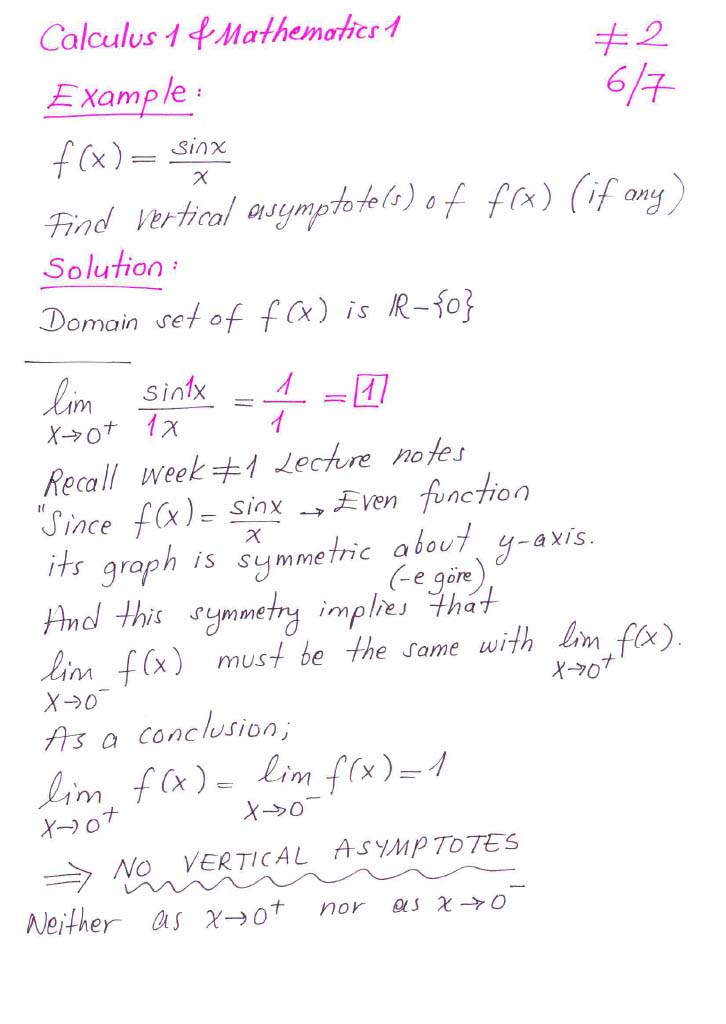 Calculus 1 & Mathematics 1
≠2
6/7
Example:
f(x) = sinx/x
Find vertical asymptote(s) of f(x) (if any)
Solution:
Domain set of f(x) is ℝ-{0}
lim x→0⁺ sin1x/1x = 1/1 = 1
Recall week ≠1 Lecture notes
"Since f(x) = sinx/x → Even function
its graph is symmetric about y-axis.
(-e göre)
And this symmetry implies that
lim x→0⁻ f(x) must be the same with lim x→0⁺ f(x).
As a conclusion;
lim x→0⁺ f(x) = lim x→0⁻ f(x) = 1
⇒ NO VERTICAL ASYMPTOTES
Neither as x→0⁺ nor as x→0⁻